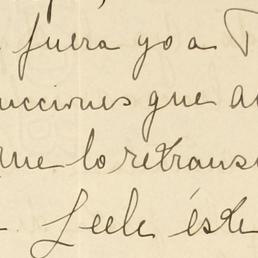 fuera yo a
ucciones que a
que lo retrans
. Leele éste